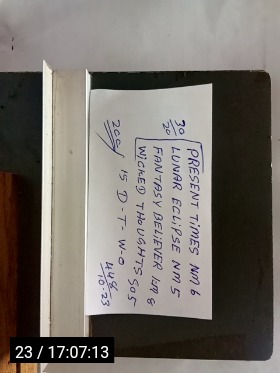 30/20
PRESENT TIMES NM 6
LUNAR ECLIPSE NM 5
FANTASY BELIEVER NM 6
WICKED THOUGHTS SOS
200/
15 D-T-W-O
448/10.23
23 / 17:07:13